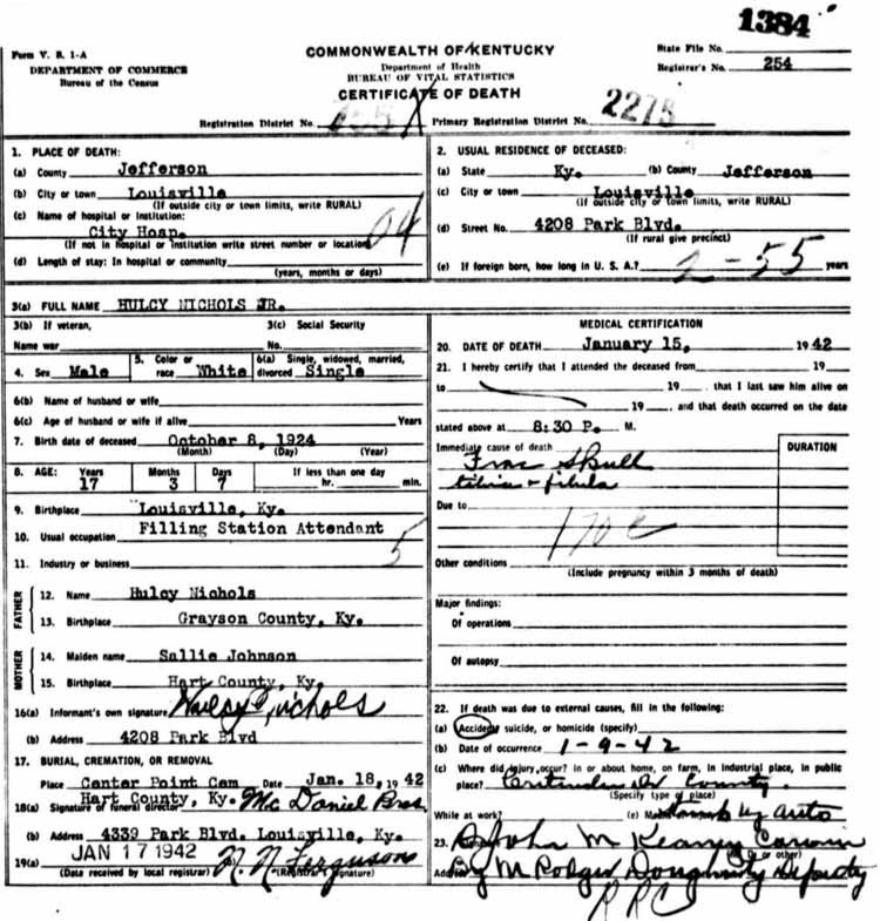 1384
Form V. S. 1-A
DEPARTMENT OF COMMERCE
Bureau of the Census
COMMONWEALTH OF KENTUCKY
Department of Health
BUREAU OF VITAL STATISTICS
CERTIFICATE OF DEATH
State File No.
Registrar's No. 254
Registration District No. Primary Registration District No. 2275
1. PLACE OF DEATH:
(a) County Jefferson
(b) City or town Louisville
(If outside city or town limits, write RURAL)
(c) Name of hospital or institution:
City Hosp.
(If not in hospital or institution write street number or location)
04
(d) Length of stay: In hospital or community
(years, months or days)
2. USUAL RESIDENCE OF DECEASED:
(a) State Ky. (b) County Jefferson
(c) City or town Louisville
(If outside city or town limits, write RURAL)
(d) Street No. 4208 Park Blvd.
(If rural give precinct)
(e) If foreign born, how long in U. S. A.? 2-55 years
3(a) FULL NAME HULCY NICHOLS JR.
3(b) If veteran, 3(c) Social Security
Name war No.
4. Sex Male 5. Color or race White 6(a) Single, widowed, married, divorced Single
6(b) Name of husband or wife
6(c) Age of husband or wife if alive Years
7. Birth date of deceased October 8, 1924
(Month) (Day) (Year)
8. AGE: Years Months Days If less than one day
17 3 7 hr. min.
9. Birthplace Louisville, Ky.
10. Usual occupation Filling Station Attendant
5
11. Industry or business
FATHER
12. Name Hulcy Nichols
13. Birthplace Grayson County, Ky.
MOTHER
14. Maiden name Sallie Johnson
15. Birthplace Hart County, Ky.
16(a) Informant's own signature Hulcy Nichols
(b) Address 4208 Park Blvd
17. BURIAL, CREMATION, OR REMOVAL
Place Center Point Cem Date Jan. 18, 1942
Hart County, Ky.
18(a) Signature of funeral director Mc Daniel Bros.
(b) Address 4339 Park Blvd. Louisville, Ky.
19(a) JAN 17 1942 N. N. Ferguson
(Date received by local registrar) (Registrar's signature)
MEDICAL CERTIFICATION
20. DATE OF DEATH January 15, 1942
21. I hereby certify that I attended the deceased from 19
to 19 , that I last saw him alive on
19 , and that death occurred on the date
stated above at 8:30 P. M.
Immediate cause of death DURATION
Frac Skull
tibia + fibula
Due to
170c
Other conditions
(Include pregnancy within 3 months of death)
Major findings:
Of operations
Of autopsy
22. If death was due to external causes, fill in the following:
(a) Accident, suicide, or homicide (specify)
(b) Date of occurrence 1-9-42
(c) Where did injury occur? In or about home, on farm, in industrial place, in public
place? Crittenden Dr County
(Specify type of place)
While at work? (e) Struck by auto
23. John M Keaney Coroner
(or other)
By M Rodger Dougherty Deputy
R R C